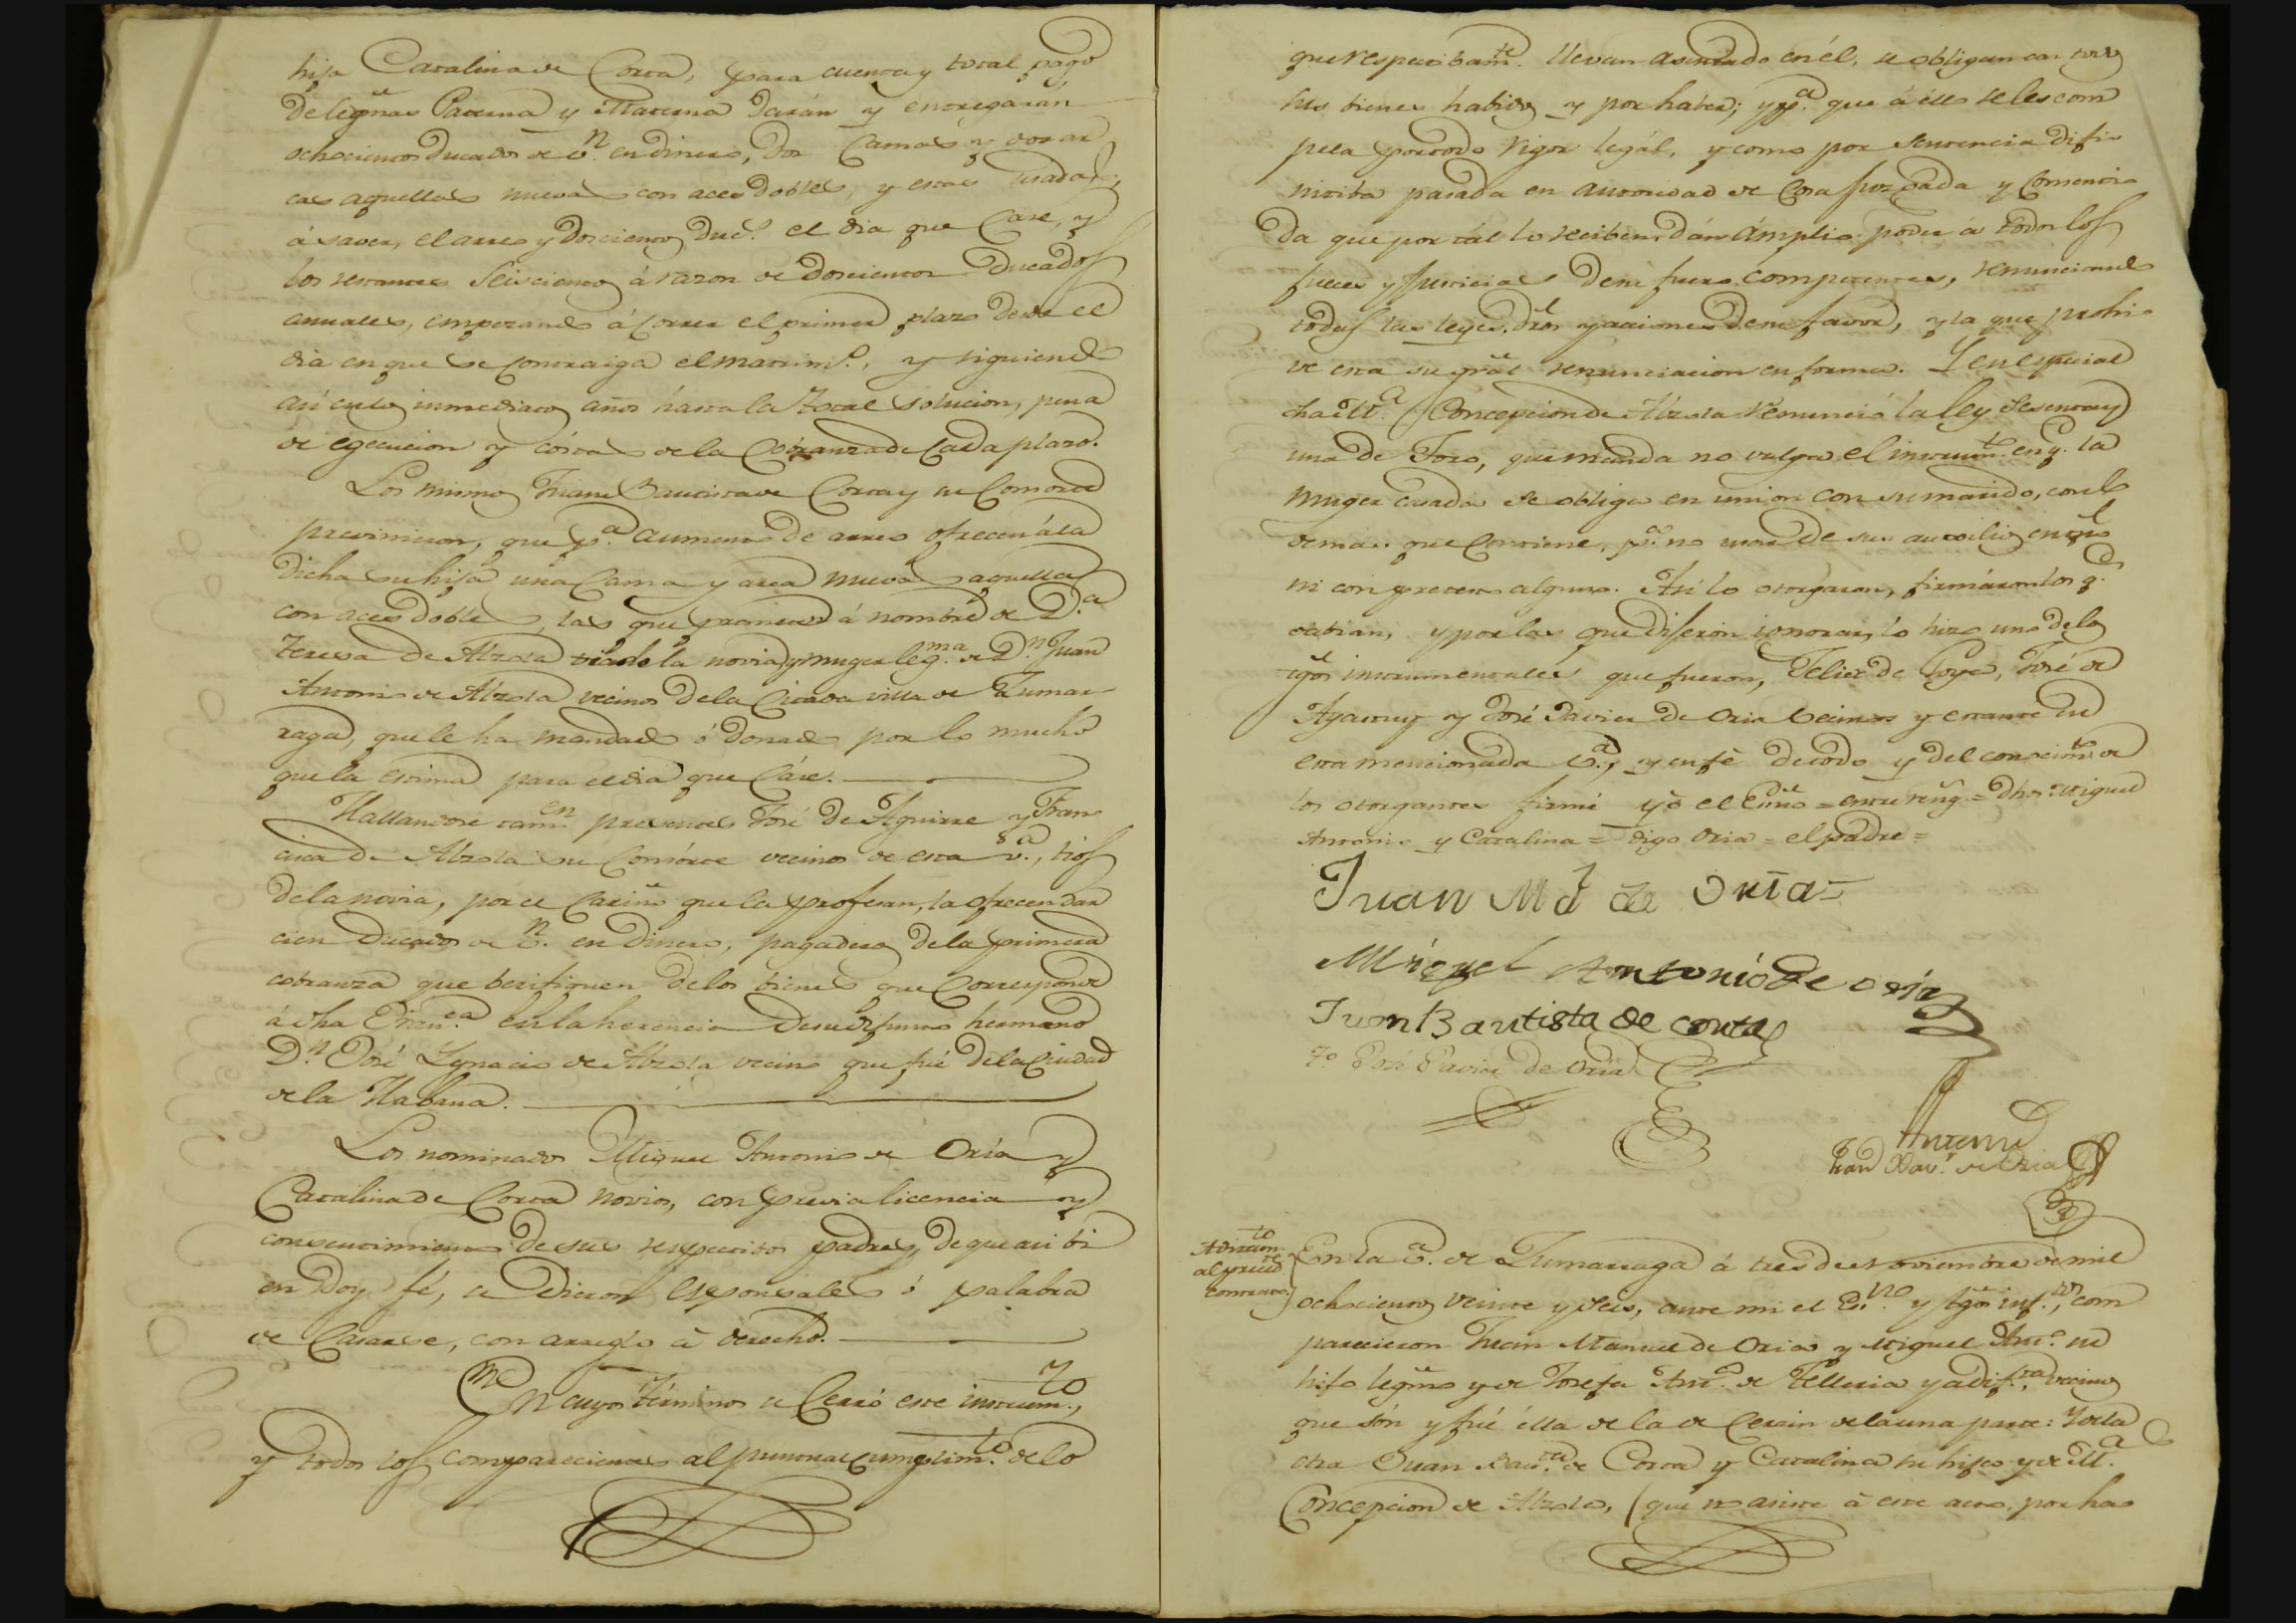 hija Catalina de Corta, para cuenta y total pago
de legmas Paterna y Materna darán y entregarán
ochocientos Ducados de v.n en dinero, dos Camas y dos ar
cas aquellas nuevas con aces dobles, y estas usadas,
á saver, el arreo y doscientos Duc.s el dia que Case, y
los restantes Seiscientos á razon de doscientos Ducados
anuales, empezando á Correr el primer plazo desde el
dia en que se Contraiga el matrim.o, y siguiendo
así en los inmediatos años hasta la total solucion, pena
de egecucion y cóstas de la Cobranza de Cada plazo.
Los mismos Juan Bautista de Corta y su Consorte
previnieron, que p.a aumento de arreo ofrecen á la
dicha su hija una Cama y arca nueva aquella
con aces dobles, las que promete á nombre de D.a
Teresa de Alzola tia de la novia y muger leg.ma de D.n Juan
Antonio de Alzola vecinos de la Citada villa de Zumar
raga, que le ha mandado ó donado por lo mucho
que la estima para el dia que Cáse.
Hallandose tam.en presentes José de Aguirre y Fran
cisca de Alzola su Consorte vecinos de esta v.a, tios
de la novia, por el Cariño que la profesan, la ofrecen dar
cien Ducados de v.n en dinero, pagaderos de la primera
cobranza que berifiquen de los bienes que Corresponde
á dha Fran.ca en la herencia de su difunto hermano
D.n José Ygnacio de Alzola vecino que fué de la Ciudad
de la Habana.
Los nominados Miguel Antonio de Oria y
Catalina de Corta novios, con previa licencia y
consentimiento de sus respectivos padres, de que asi bi
en Doy fé, se Dieron esponsales ó palabra
de Casarse, con arreglo á derecho.
En cuyos términos se Cerró este instrum.to,
y todos los comparecientes al puntual Cumplim.to de lo
que respectibam.te llevan asentado en él, se obligan con todos
sus bienes habidos y por haber; y p.a que á ello se les com
pela por todo rigor legál, y como por Sentencia difi
nitiba pasada en autoridad de Cosa juzgada y Consenti
da que por tál lo reciben, dán ámplio poder á todos los
jueces y Justicias de su fuero competentes, renunciando
todas las leyes, dros y acciones de su favor, y la que prohi
ve esta su gral renunciacion en forma. Y en especial
dha M.a Concepcion de Alzola renunció la ley Sesenta y
una de Toro, que manda no valga el instrum.to en q. la
muger casada se obliga en union con su marido, con lo
demas que Contiene, p.a no usar de su auxilio en tpo
ni con pretesto alguno. Asi lo otorgaron, firmáron los q.e
sabian, y por las que dijeron ignorar, lo hizo uno de los
tgos instrumentales que fueron, Felix de Goya, José de
Ayastuy y José Javier de Oria vecinos y estante en
esta mencionada v.a, y en fé de todo y del conocim.to de
los otorgantes firmé yo el Esno = entre reng. = Dhos = Miguel
Antonio y Catalina = digo Oria = el padre =
Juan M.l de Oria
Miguel Antonio de Oria
Juan Bautista de Corta
T.o José Javier de Oria
Antemi
Juan Xav.r de Oria
Adicion
al preced.te
contrato.
En la v.a de Zumarraga á tres de Noviembre de mil
ochocientos veinte y Seis, ante mi el Es.no y tgos inf.tos, com
parecieron Juan Manuel de Oria y Miguel Ant.o su
hijo legmo y de Josefa Ant.a de Telleria ya dif.ta, vecinos
que són y fué élla de la de Cerain de la una parte: Y de la
otra Juan Bau.ta de Corta y Catalina su hija y de M.a
Concepcion de Alzola, (que no asiste á este acto, por ha